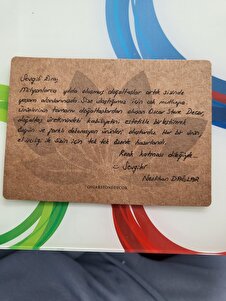 Sevgili Eliay,
Milyonlarca yılda oluşmuş doğaltaşlar artık sizinle
yaşam alanlarınızda. Size ulaştığımız için çok mutluyuz.
Ürünlerinin tamamı doğaltaşlardan oluşan Onsar Stone Decor,
doğaltaş üretimindeki kabiliyetini estetikle birleştirerek
özgün ve farklı dekorasyon ürünleri oluşturdu. Her bir ürün,
el işçiliği ile sizin için tek tek özenle hazırlandı.
Renk katması dileğiyle..
Sevgiler
Neslihan DAĞLAR